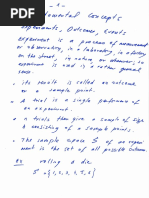 - 1 -
Fundamental Concepts
Experiments, Outcomes, Events
experiment is a process of measurement
or observation, in a laboratory, in a factory,
on the street, in nature, or wherever, so
experiment is used in a rather general
sense.
The result is called an outcome
or a sample point.
A trial is a single performance of
an experiment.
n trials then give a sample of size n
consisting of n sample points.
The sample space S of an experi-
ment is the set of all possible outcomes.
Ex rolling a die
S = {1,2,3,4,5,6}